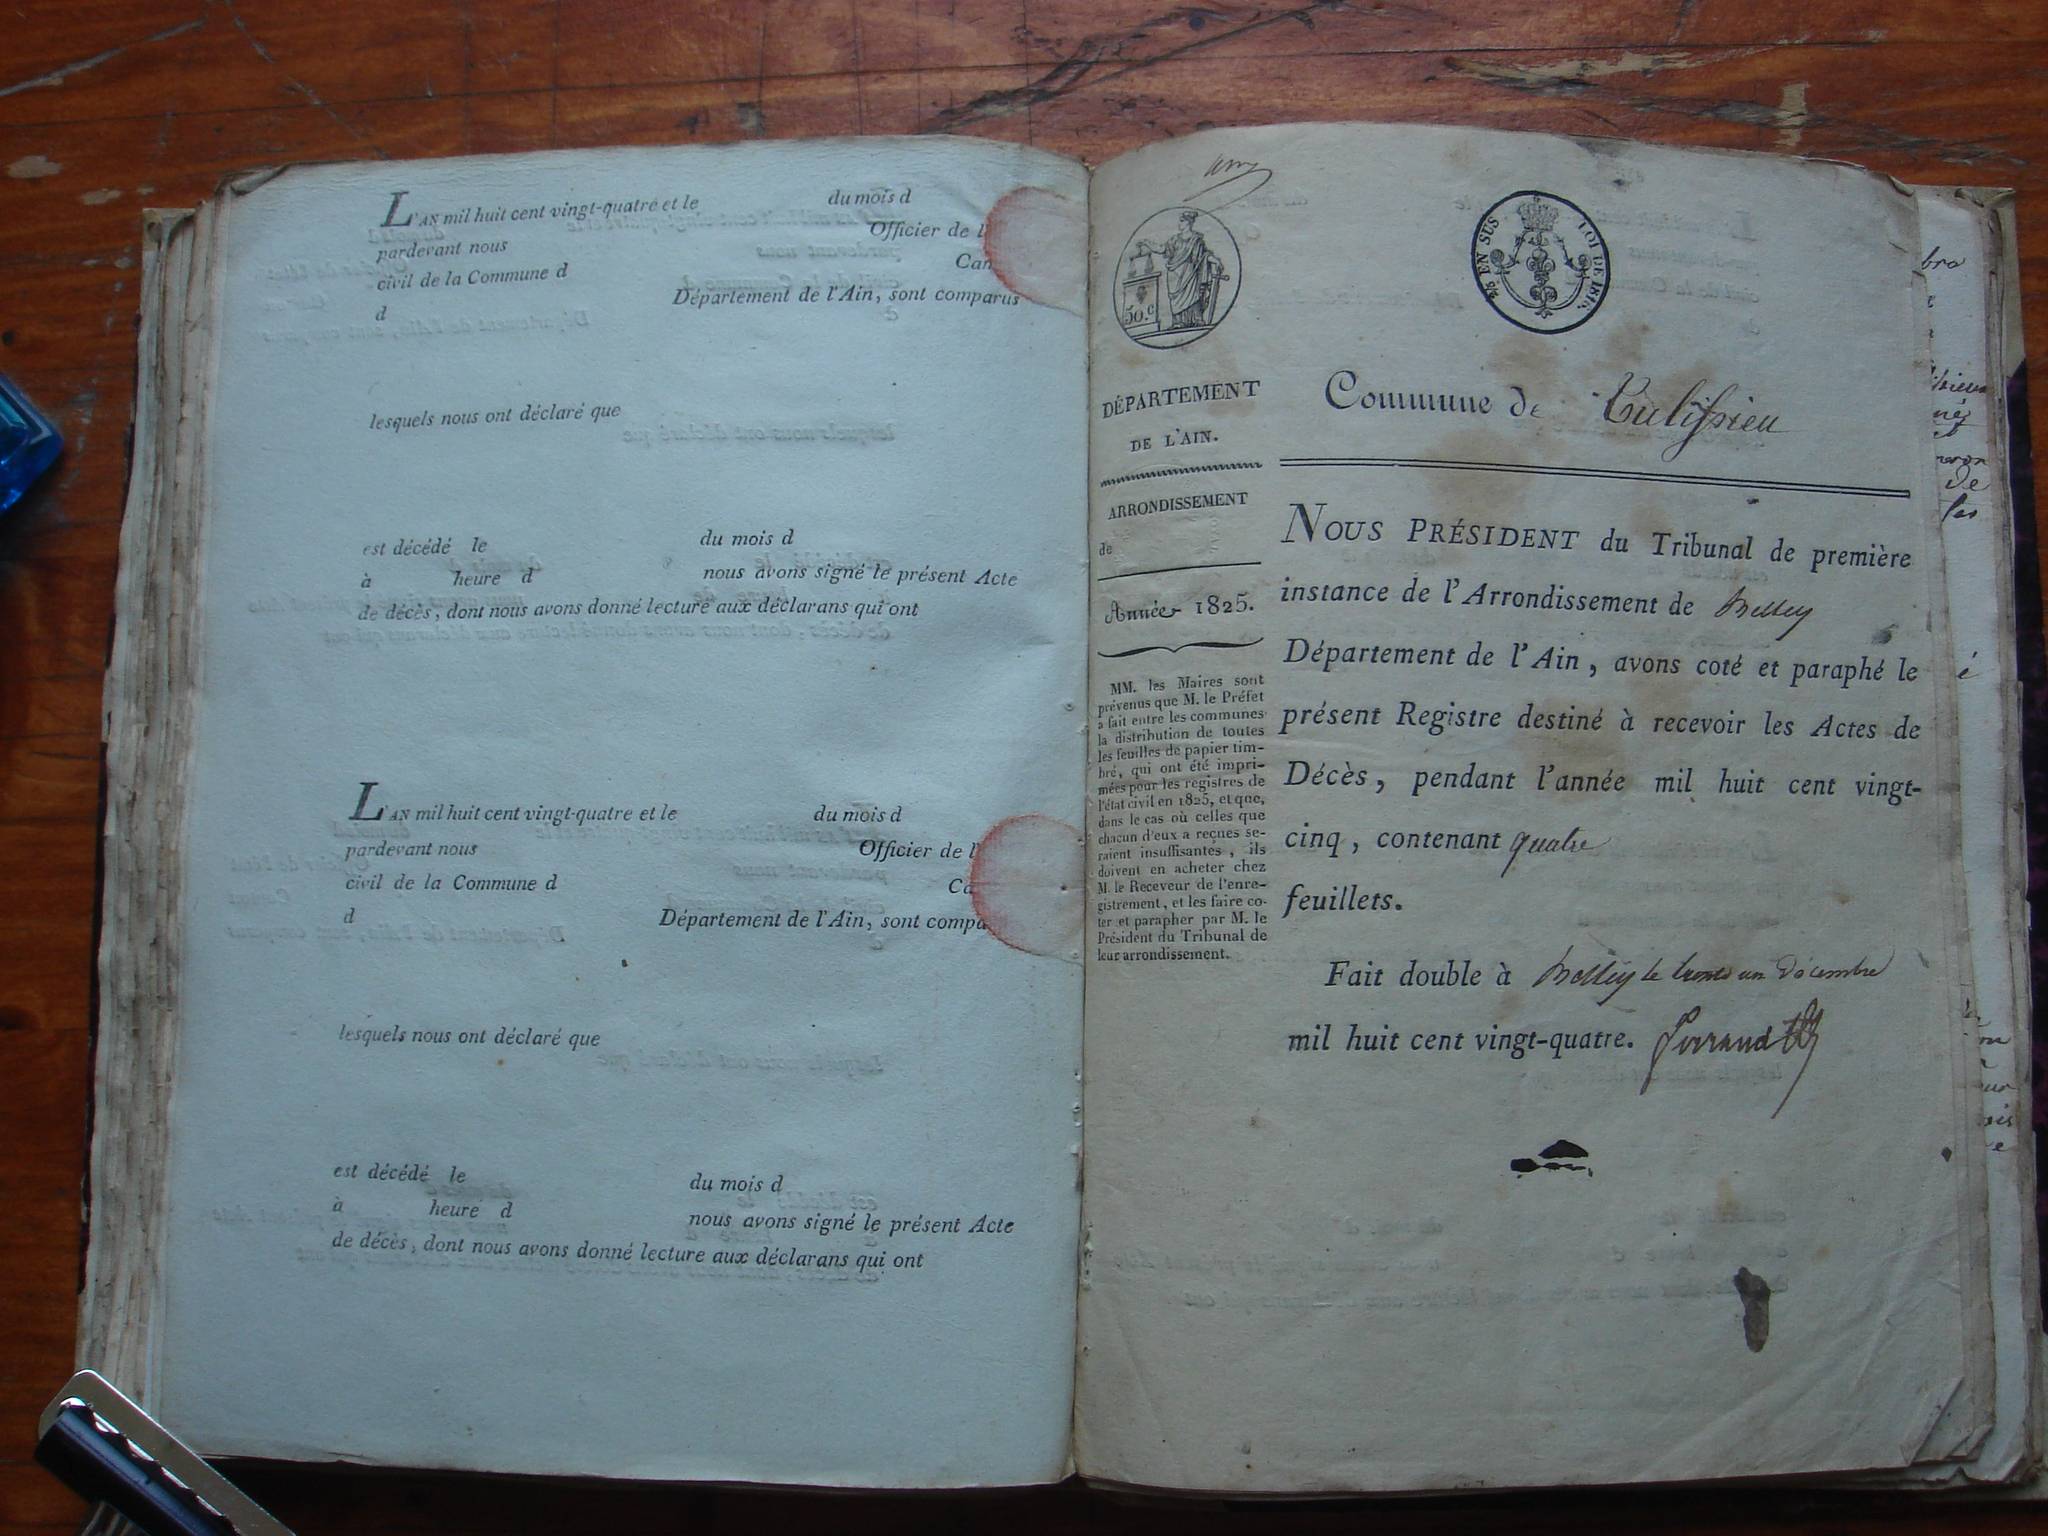 L'AN mil huit cent vingt-quatre et le du mois d
pardevant nous Officier de l
civil de la Commune d Can
d Département de l'Ain, sont comparus
lesquels nous ont déclaré que
est décédé le du mois d
à heure d nous avons signé le présent Acte
de décès, dont nous avons donné lecture aux déclarans qui ont
L'AN mil huit cent vingt-quatre et le du mois d
pardevant nous Officier de l
civil de la Commune d Ca
d Département de l'Ain, sont compa
lesquels nous ont déclaré que
est décédé le du mois d
à heure d nous avons signé le présent Acte
de décès, dont nous avons donné lecture aux déclarans qui ont
50.c
EN SUS LOI DE
DÉPARTEMENT
DE L'AIN.
ARRONDISSEMENT
de
Année 1825.
MM. les Maires sont
prévenus que M. le Préfet
a fait entre les communes
la distribution de toutes
les feuilles de papier tim-
bré, qui ont été impri-
mées pour les registres de
l'état civil en 1825, et que,
dans le cas où celles que
chacun d'eux a reçues se-
raient insuffisantes, ils
doivent en acheter chez
M. le Receveur de l'enre-
gistrement, et les faire co-
ter et parapher par M. le
Président du Tribunal de
leur arrondissement.
Commune de Culissieu
NOUS PRÉSIDENT du Tribunal de première
instance de l'Arrondissement de Belley
Département de l'Ain, avons coté et paraphé le
présent Registre destiné à recevoir les Actes de
Décès, pendant l'année mil huit cent vingt-
cinq, contenant quatre
feuillets.
Fait double à Belley le trente un Décembre
mil huit cent vingt-quatre.